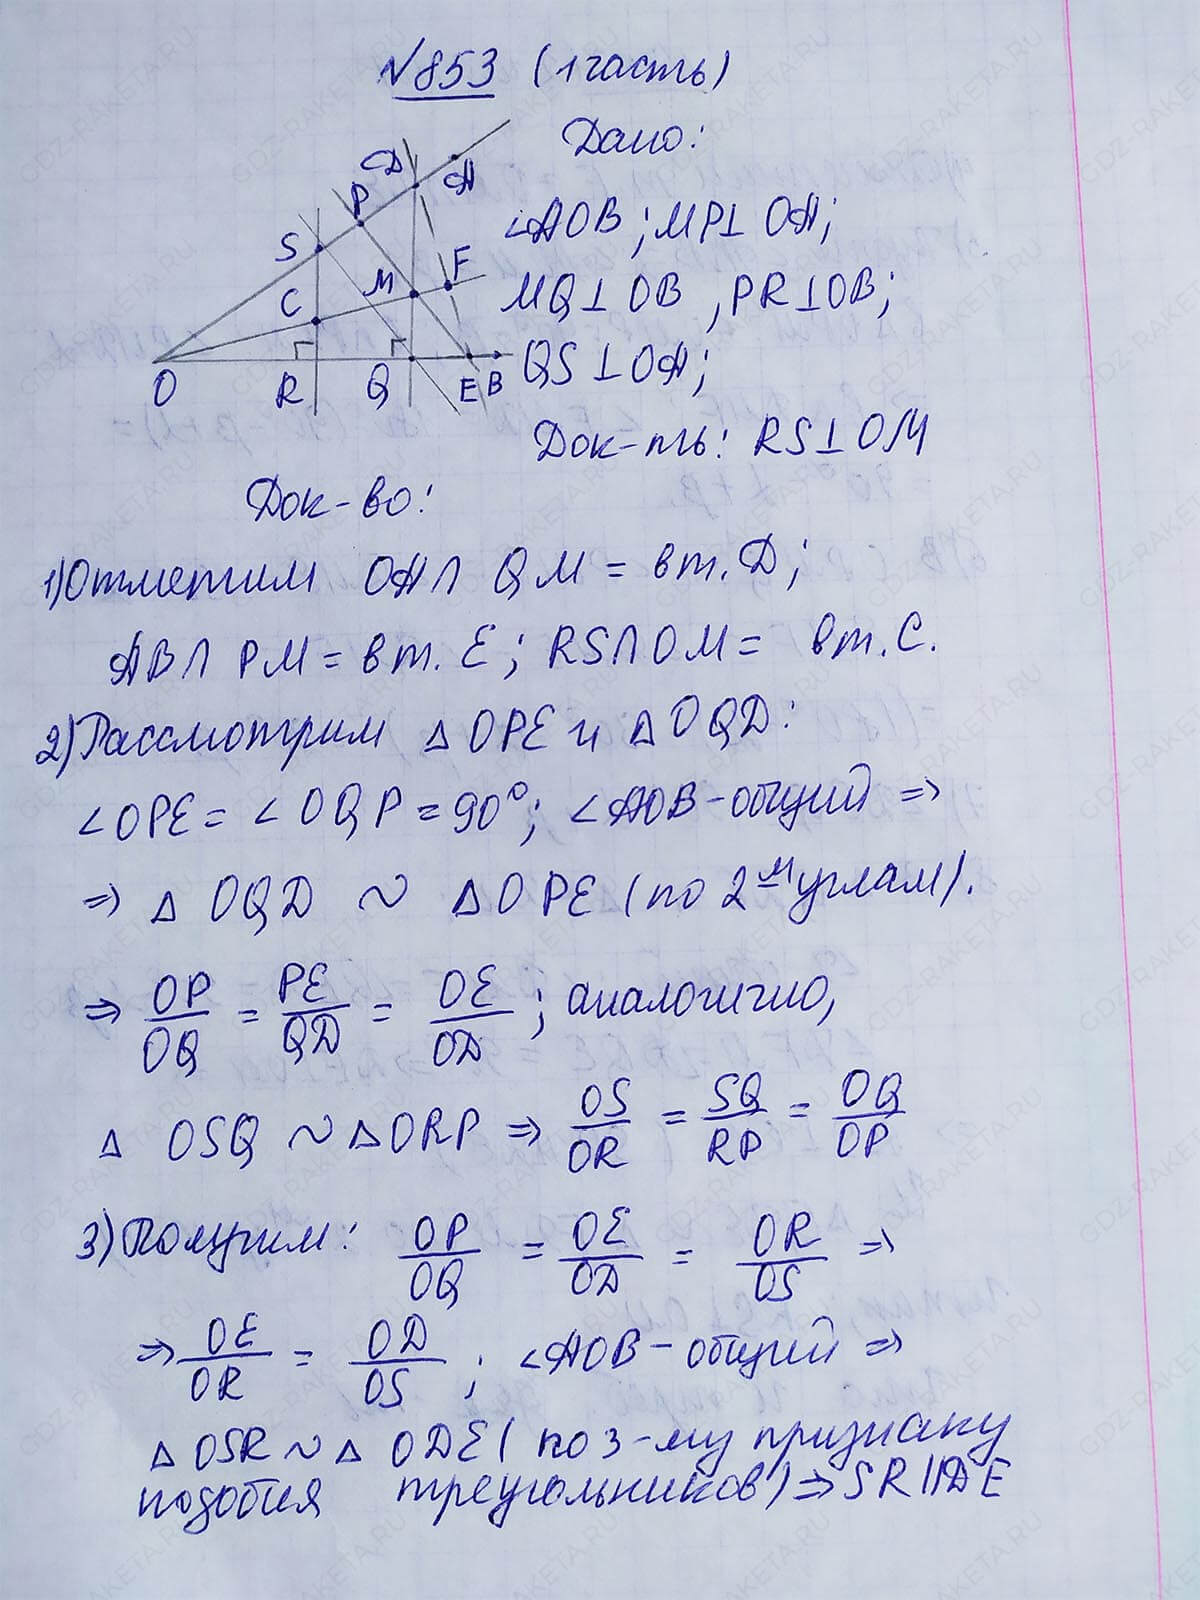 №853 (1 часть)
Дано:
∠AOB; MP⊥OA;
MQ⊥OB, PR⊥OB;
QS⊥OA;
Док-ть: RS⊥OM
S P D A
C M F
O R Q E B
Док-во:
1) Отметим OA∩QM = в т. D;
AB∩PM = в т. E; RS∩OM = в т. C.
2) Рассмотрим △OPE и △OQD:
∠OPE = ∠OQP = 90°; ∠AOB-общий ⇒
⇒ △OQD ~ △OPE (по 2-м углам).
⇒ OP/OQ = PE/QD = OE/OD; аналогично,
△OSQ ~ △ORP ⇒ OS/OR = SQ/RP = OQ/OP
3) Получим: OP/OQ = OE/OD = OR/OS ⇒
⇒ OE/OR = OD/OS; ∠AOB-общий ⇒
△OSR ~ △ODE (по 3-му признаку
подобия треугольников) ⇒ SR||DE
GDZ-RAKETA.RU